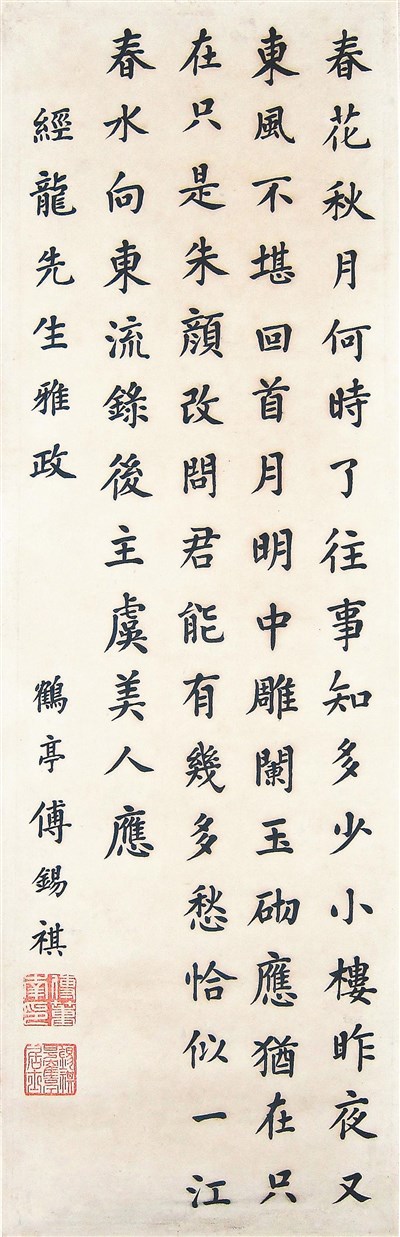 春花秋月何時了往事知多少小樓昨夜又
東風不堪回首月明中雕闌玉砌應猶在只
在只是朱顏改問君能有幾多愁恰似一江
春水向東流錄後主虞美人應
經龍先生雅政
鶴亭傅錫祺